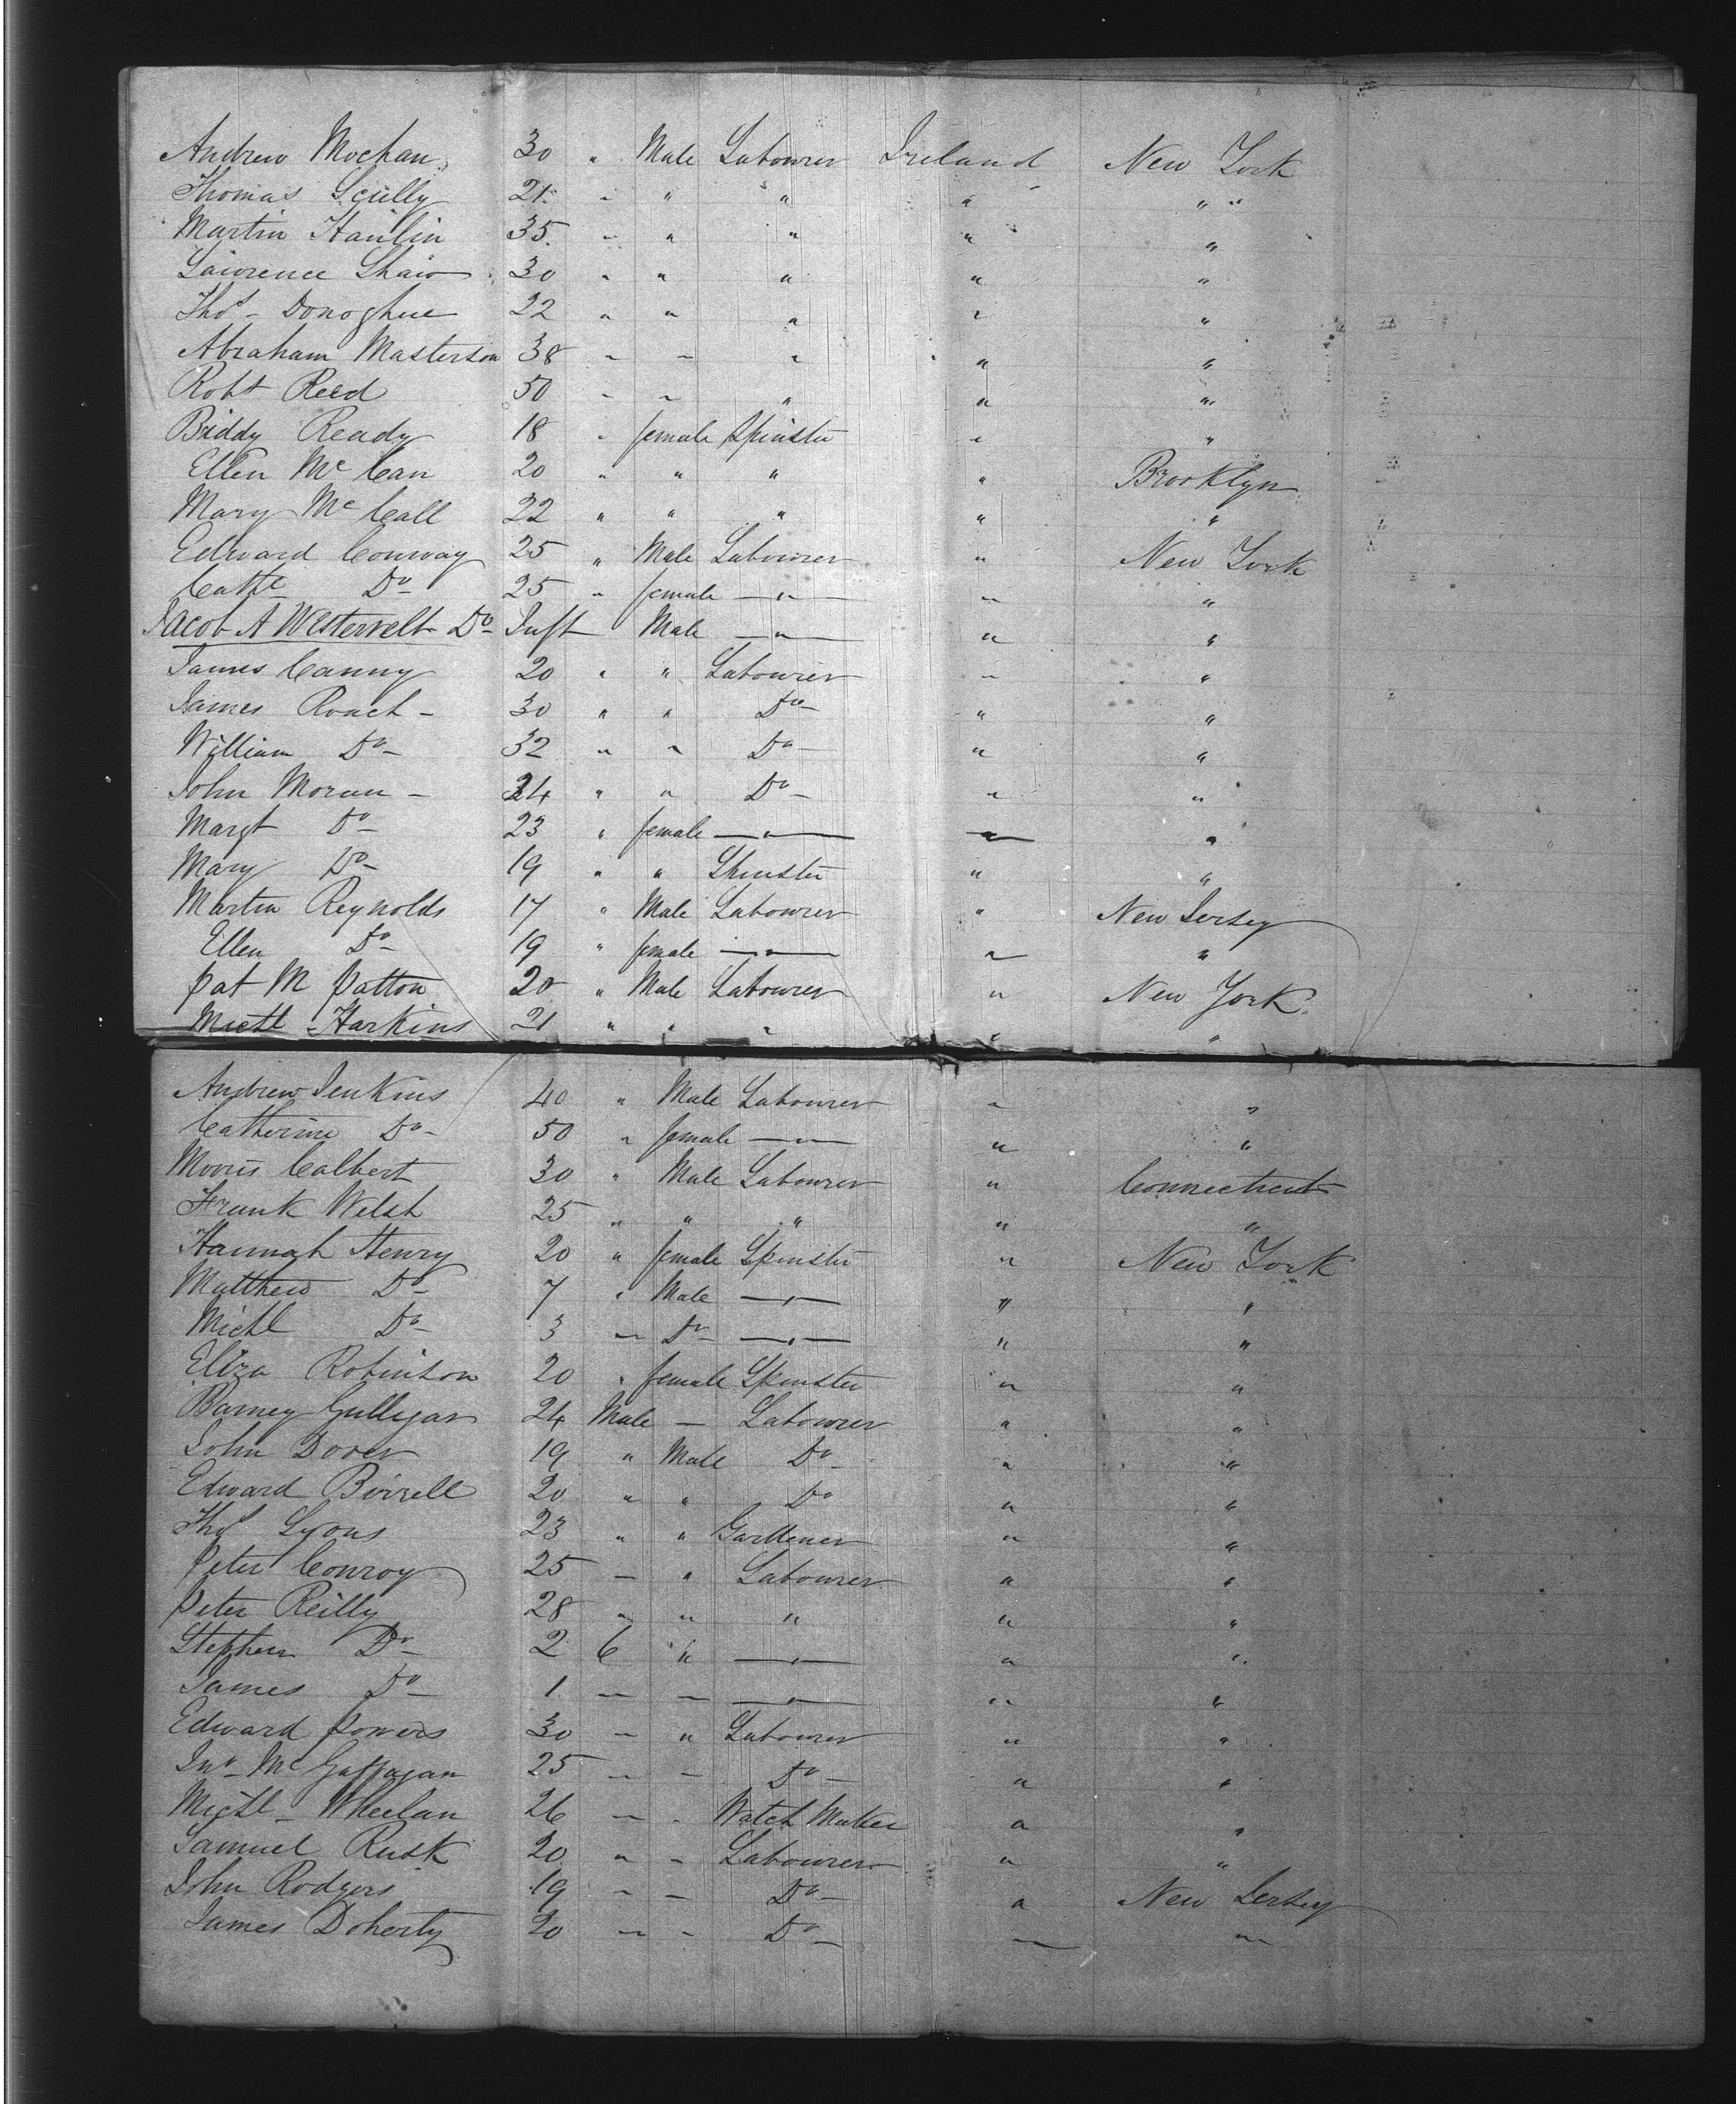 Andrew Mochan 30 " Male Labourer Ireland New York
Thomas Scully 21 " " " " " "
Martin Hanlin 35 " " " " "
Lawrence Shaw 30 " " " " "
Thos Donoghue 22 " " " " "
Abraham Masterson 38 " " " " "
Robt Reed 50 " " " " "
Biddy Ready 18 " female Spinster " "
Ellen McCan 20 " " " " Brooklyn
Mary McCall 22 " " " " "
Edward Conway 25 " Male Labourer " New York
Cathe Do 25 " female — " — " "
Jacob A Westervelt Do Inft Male — " — " "
James Canny 20 " " Labourer " "
James Roach 30 " " Do " "
William Do 32 " " Do " "
John Moran 24 " " Do " "
Margt Do 23 " female — " — " "
Mary Do 19 " " Spinster " "
Martin Reynolds 17 " Male Labourer " New Jersey
Ellen Do 19 " female — " — " "
Pat M Patton 20 " Male Labourer " New York
Michl Harkins 21 " " " " "
Andrew Jenkins 40 " Male Labourer " "
Catherine Do 50 " female — " — " "
Morris Calbert 30 " Male Labourer " Connecticut
Frank Welsh 25 " " " " "
Hannah Henry 20 " female Spinster " New York
Matthew Do 7 " Male — " — " "
Michl Do 3 " Do — " — " "
Eliza Robinson 20 " female Spinster " "
Barney Gulligan 24 Male — Labourer " "
John Dover 19 " Male Do " "
Edward Birrell 20 " " Do " "
Thos Lyons 23 " " Gardener " "
Peter Conroy 25 " " Labourer " "
Peter Reilly 28 " " " " "
Stephen Do 2 6 " — " — " "
James Do 1 " " — " — " "
Edward Powers 30 " " Labourer " "
Jno McGaffagan 25 " " Do " "
Michl Wheelan 26 " " Watch Maker " "
Samuel Rusk 20 " " Labourer " "
John Rodgers 19 " " Do " New Jersey
James Doherty 20 " " Do " "